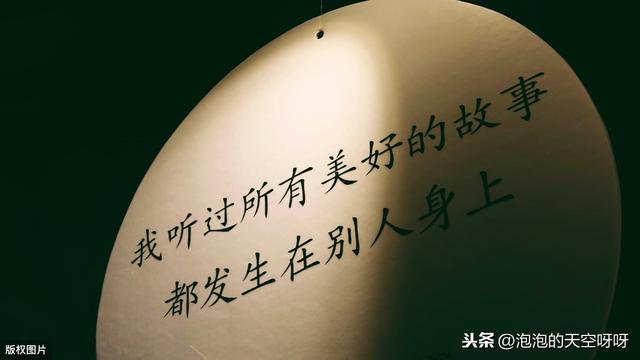 我听过所有美好的故事
都发生在别人身上
版权图片
头条@泡泡的天空呀呀